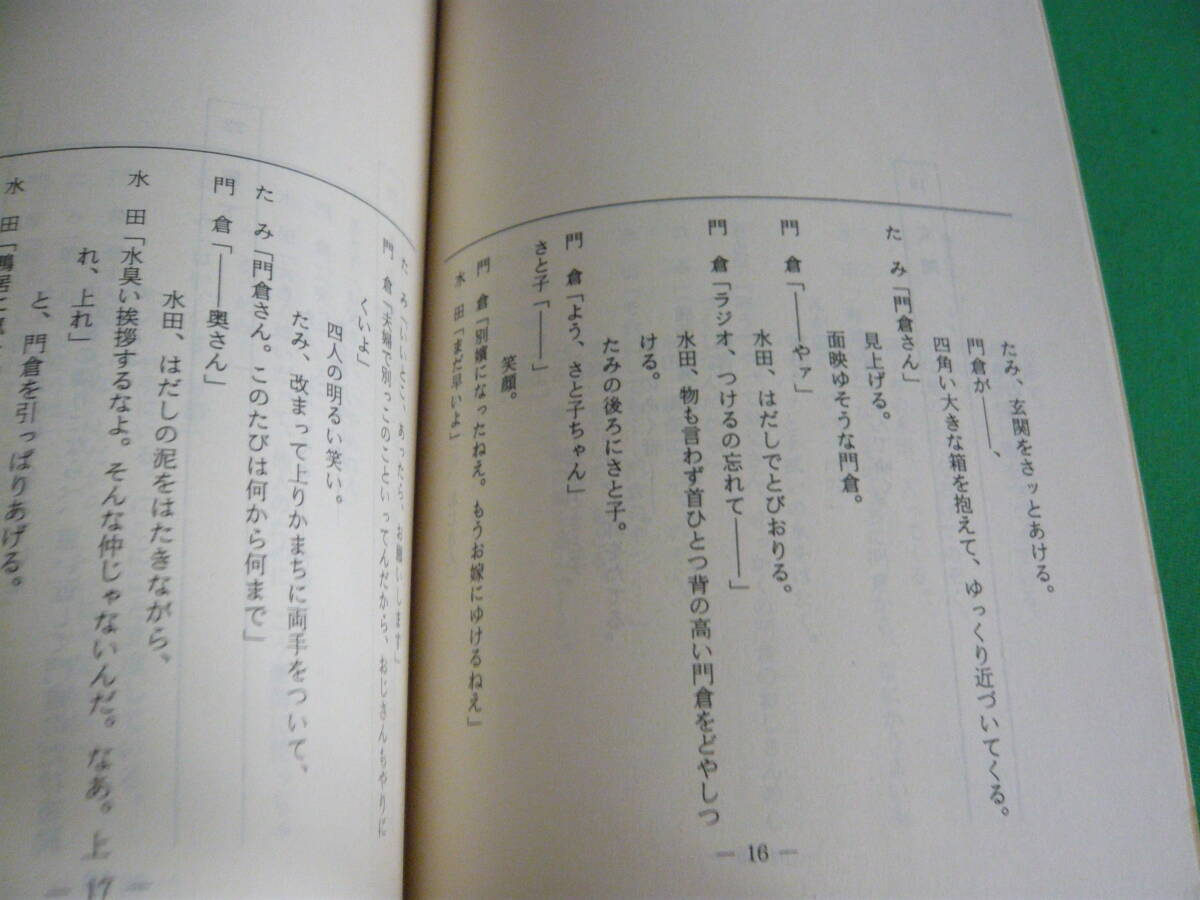 たみ、玄関をさッとあける。
門倉が――、
四角い大きな箱を抱えて、ゆっくり近づいてくる。
たみ「門倉さん」
見上げる。
面映ゆそうな門倉。
門倉「――やァ」
水田、はだしでとびおりる。
門倉「ラジオ、つけるの忘れて――」
水田、物も言わず首ひとつ背の高い門倉をどやしつ
ける。
たみの後ろにさと子。
門倉「よう、さと子ちゃん」
さと子「――」
笑顔。
門倉「別嬪になったねえ。もうお嫁にゆけるねえ」
水田「まだ早いよ」
— 16 —
たみ「いいとこ、あったら、お願いします」
門倉「夫婦で別っこのこといってんだから、おじさんもやりに
くいよ」
四人の明るい笑い。
たみ、改まって上りかまちに両手をついて、
たみ「門倉さん。このたびは何から何まで」
門倉「――奥さん」
水田、はだしの泥をはたきながら、
水田「水臭い挨拶するなよ。そんな仲じゃないんだ。なあ。上
れ、上れ」
と、門倉を引っぱりあげる。
水田「鴨居に
17